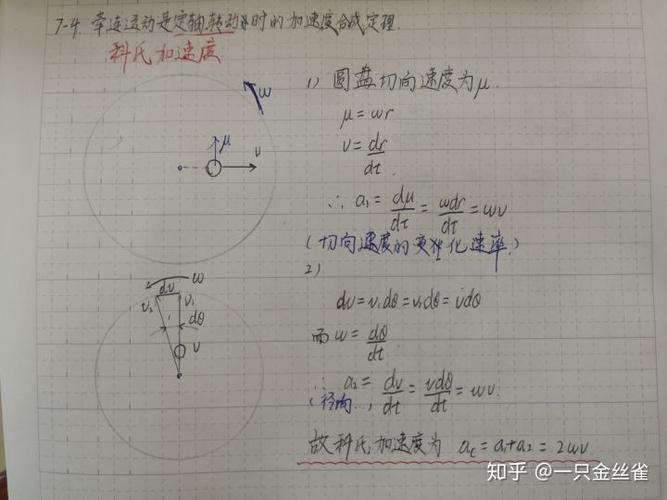 7-4. 牵连运动是定轴转动时的加速度合成定理.
科氏加速度
ω
μ
v
1) 圆盘切向速度为μ.
μ = ωr
v = dr/dt.
∴ a₁ = dμ/dt = ωdr/dt = ωv
(切向速度的变化速率.)
2)
ω
dv
v₂
v₁
dθ
v
dv = v₁dθ = v₂dθ = vdθ
而 ω = dθ/dt.
∴ a₂ = dv/dt = vdθ/dt = ωv.
(径向.)
故科氏加速度为 a꜀ = a₁+a₂ = 2ωv
知乎 @一只金丝雀